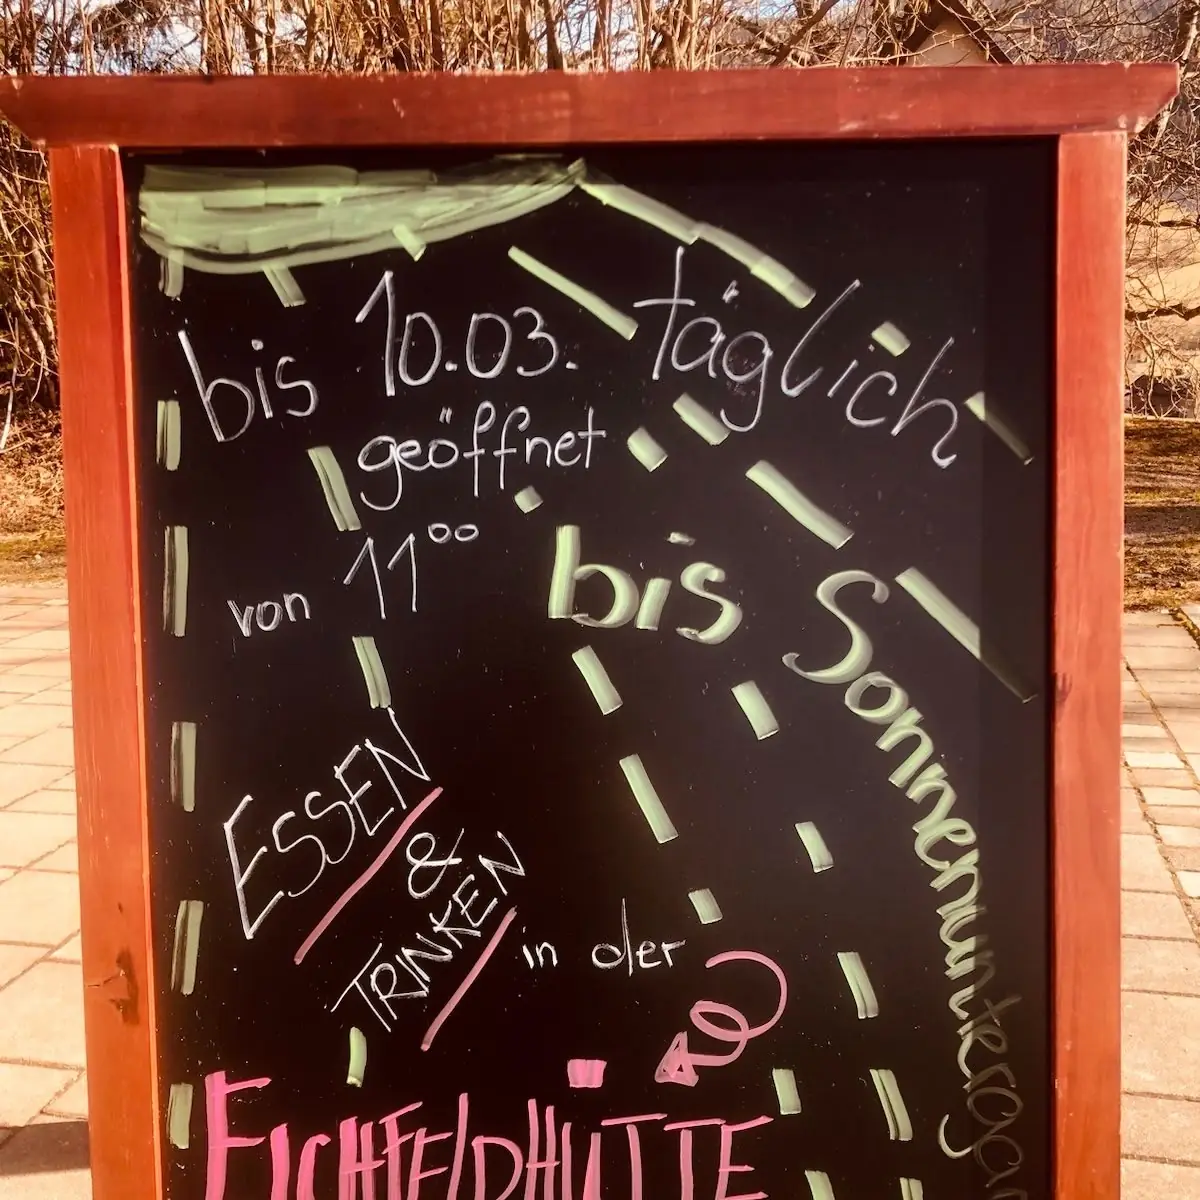 bis 10.03. täglich
geöffnet
von 11⁰⁰ bis Sonnenunterga
ESSEN
&
TRINKEN
in der
EICHFELDHÜTTE